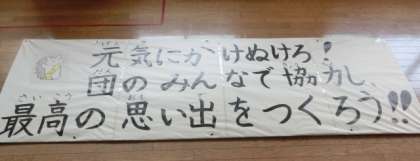 元気にかけぬけろ!
団のみんなで協力し
最高の思い出をつくろう!!